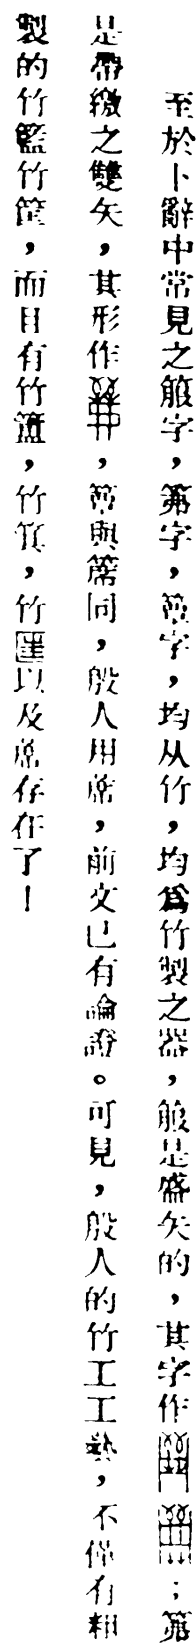 至於卜辭中常見之箙字，第字，簟字，均从竹，均爲竹製之器，箙是盛矢的，其字作；第
是帶繳之雙矢，其形作，簟與席同，殷人用席，前文已有論證。可見，殷人的竹工工藝，不僅有粗
製的竹籃竹筐，而且有竹簠，竹箕，竹匰以及席存在了！